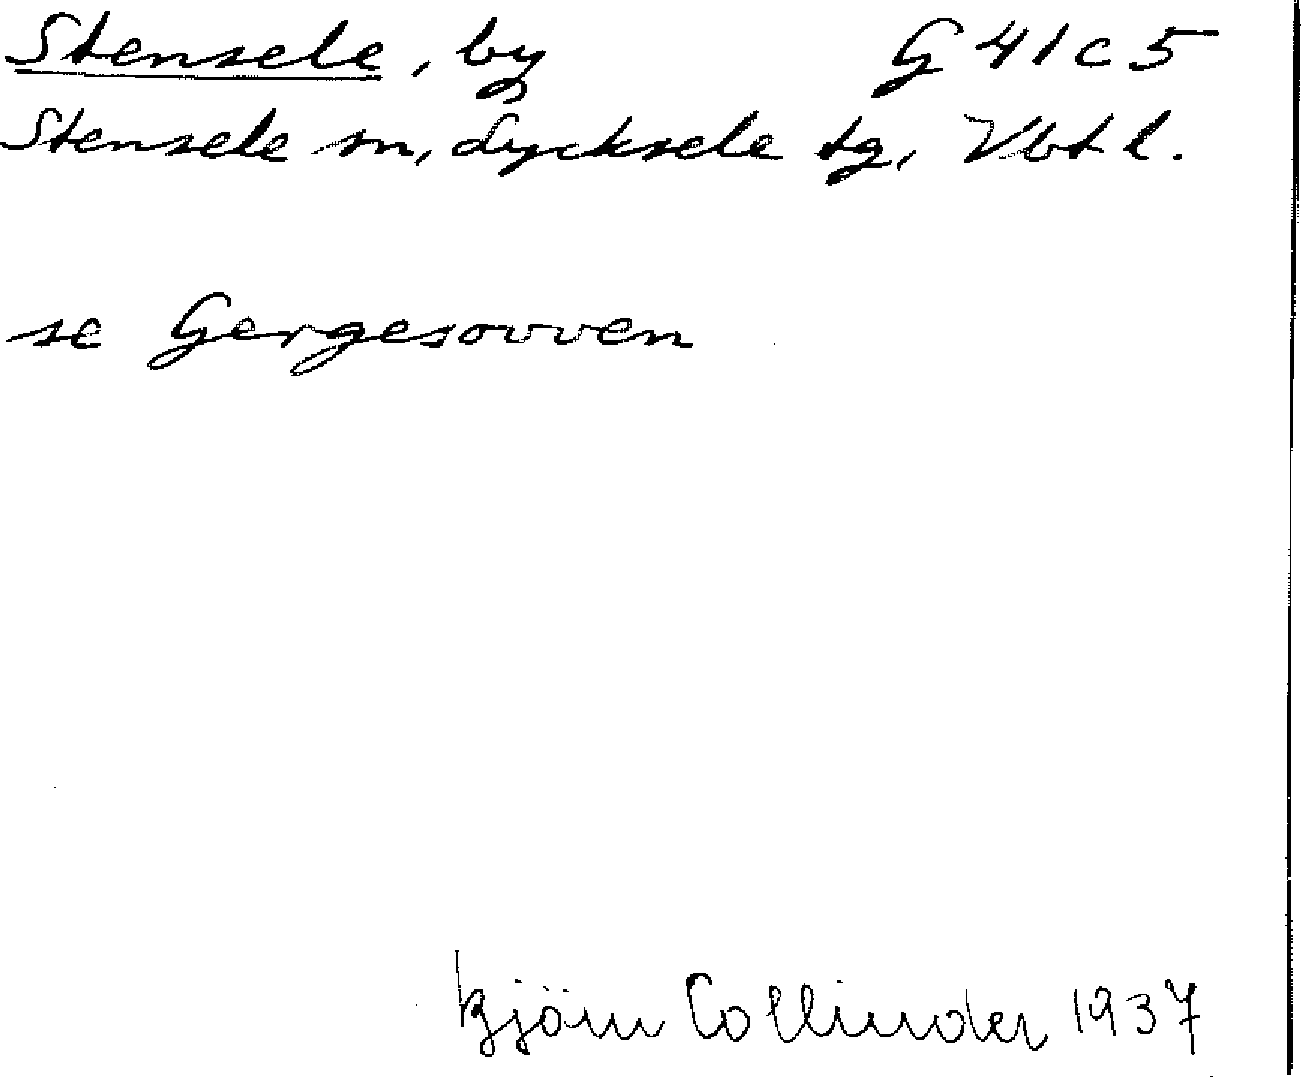 Stensele, by G 41 c 5
Stensele sn, Lycksele tg, Vbt l.
se Gergesovven
Björn Collinder 1937